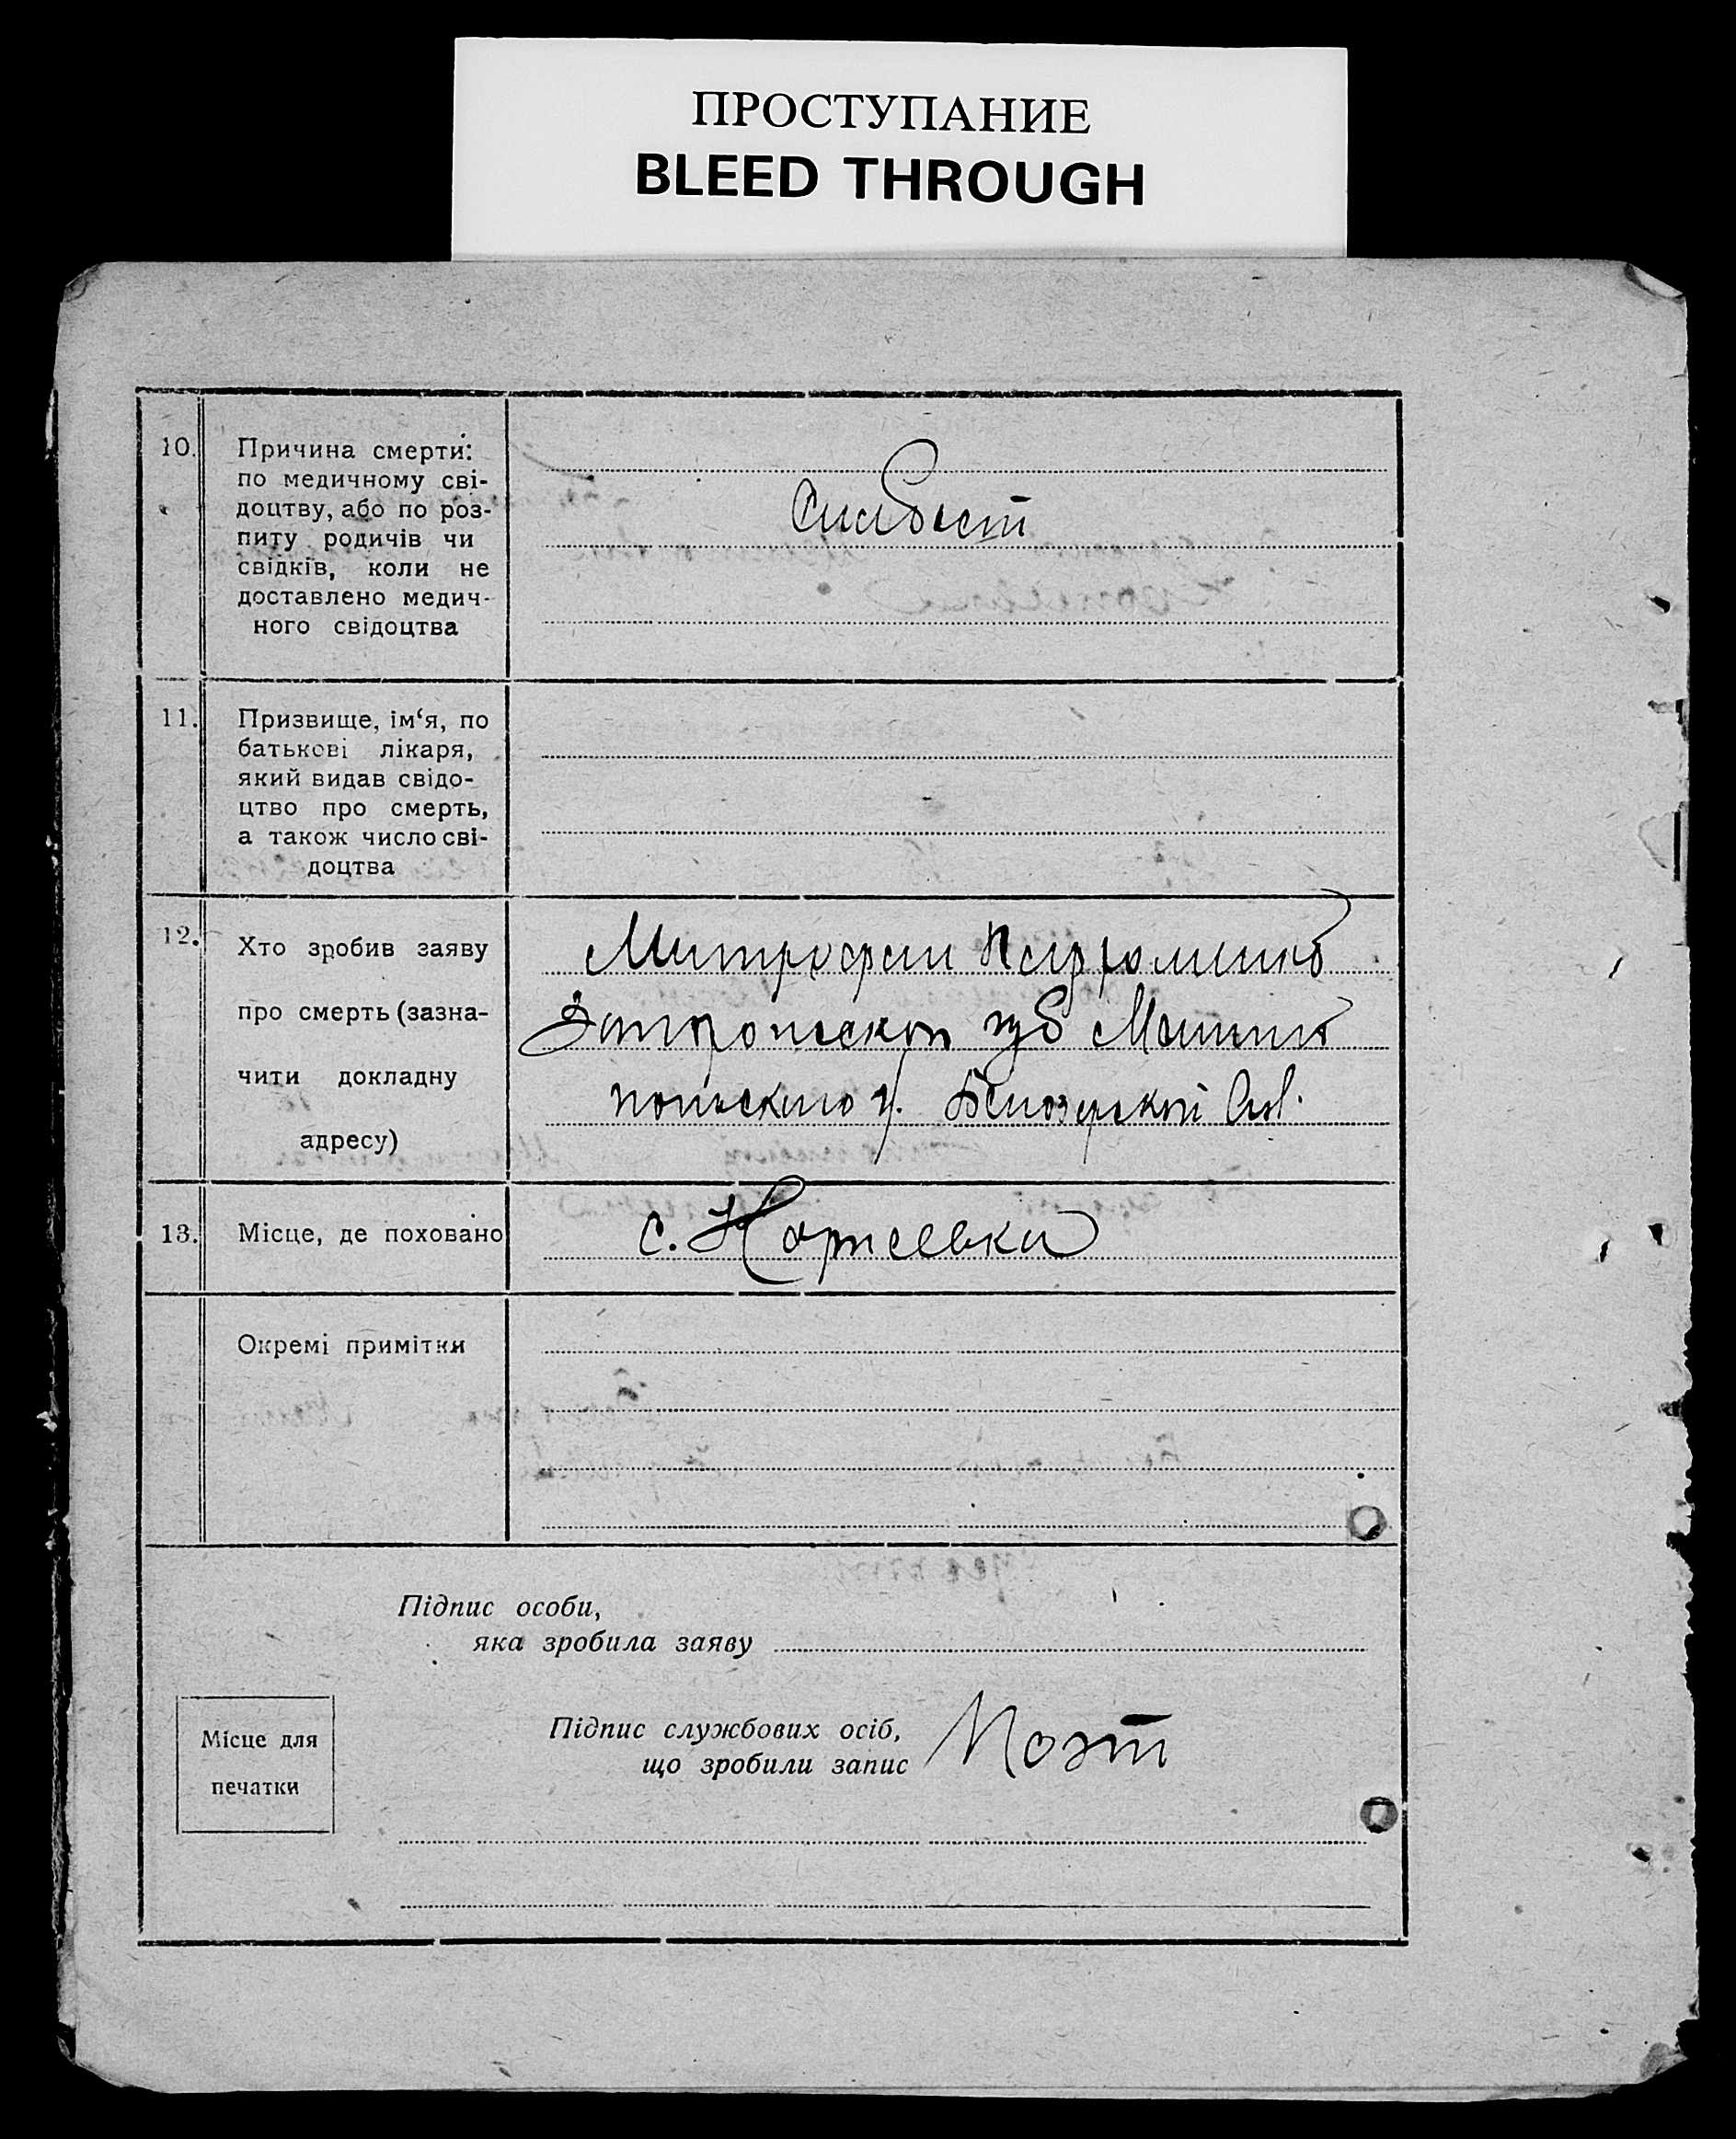 ПРОСТУПАНИЕ
BLEED THROUGH
10.
Причина смерти:
по медичному сві-
доцтву, або по роз-
питу родичів чи
свідків, коли не
доставлено медич-
ного свідоцтва
Слабост
11.
Призвище, ім‘я, по
батькові лікаря,
який видав свідо-
цтво про смерть,
а також число сві-
доцтва
12.
Хто зробив заяву
про смерть (зазна-
чити докладну
адресу)
Митрофан
губ
13.
Місце, де поховано
с.
Окремі примітки
Підпис особи,
яка зробила заяву
Підпис службових осіб,
що зробили запис
Місце для
печатки